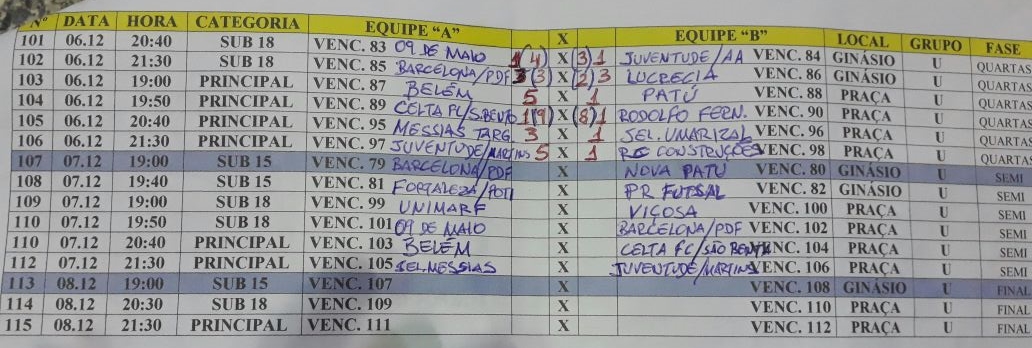 Nº DATA HORA CATEGORIA EQUIPE “A” X EQUIPE “B” LOCAL GRUPO FASE
101 06.12 20:40 SUB 18 VENC. 83 09 DE MAIO 1(4) X (3)1 JUVENTUDE/AA VENC. 84 GINÁSIO U QUARTAS
102 06.12 21:30 SUB 18 VENC. 85 BARCELONA/PDF 3(3) X (2)3 LUCRECIA VENC. 86 GINÁSIO U QUARTAS
103 06.12 19:00 PRINCIPAL VENC. 87 BELÉM 5 X 1 PATÚ VENC. 88 PRAÇA U QUARTAS
104 06.12 19:50 PRINCIPAL VENC. 89 CELTA FC/S.BENTO 1(9) X (8)1 RODOLFO FERN. VENC. 90 PRAÇA U QUARTAS
105 06.12 20:40 PRINCIPAL VENC. 95 MESSIAS TARG. 3 X 1 SEL. UMARIZAL VENC. 96 PRAÇA U QUARTAS
106 06.12 21:30 PRINCIPAL VENC. 97 JUVENTUDE/MARTINS 5 X 1 CONSTRUÇÕES VENC. 98 PRAÇA U QUARTAS
107 07.12 19:00 SUB 15 VENC. 79 BARCELONA/PDF X NOVA PATU VENC. 80 GINÁSIO U SEMI
108 07.12 19:40 SUB 15 VENC. 81 FORTALEZA/POTI X PR FUTSAL VENC. 82 GINÁSIO U SEMI
109 07.12 19:00 SUB 18 VENC. 99 UNIMARF X VIÇOSA VENC. 100 PRAÇA U SEMI
110 07.12 19:50 SUB 18 VENC. 101 09 DE MAIO X BARCELONA/PDF VENC. 102 PRAÇA U SEMI
110 07.12 20:40 PRINCIPAL VENC. 103 BELÉM X CELTA FC/SÃO BENTO VENC. 104 PRAÇA U SEMI
112 07.12 21:30 PRINCIPAL VENC. 105 SEL.MESSIAS X JUVENTUDE/MARTINS VENC. 106 PRAÇA U SEMI
113 08.12 19:00 SUB 15 VENC. 107 X VENC. 108 GINÁSIO U FINAL
114 08.12 20:30 SUB 18 VENC. 109 X VENC. 110 PRAÇA U FINAL
115 08.12 21:30 PRINCIPAL VENC. 111 X VENC. 112 PRAÇA U FINAL